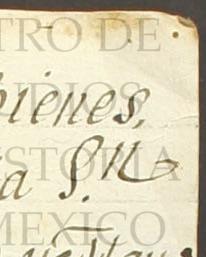 TRO DE
bienes,
UDIOS
ISTORIA
a S.M
MEXICO